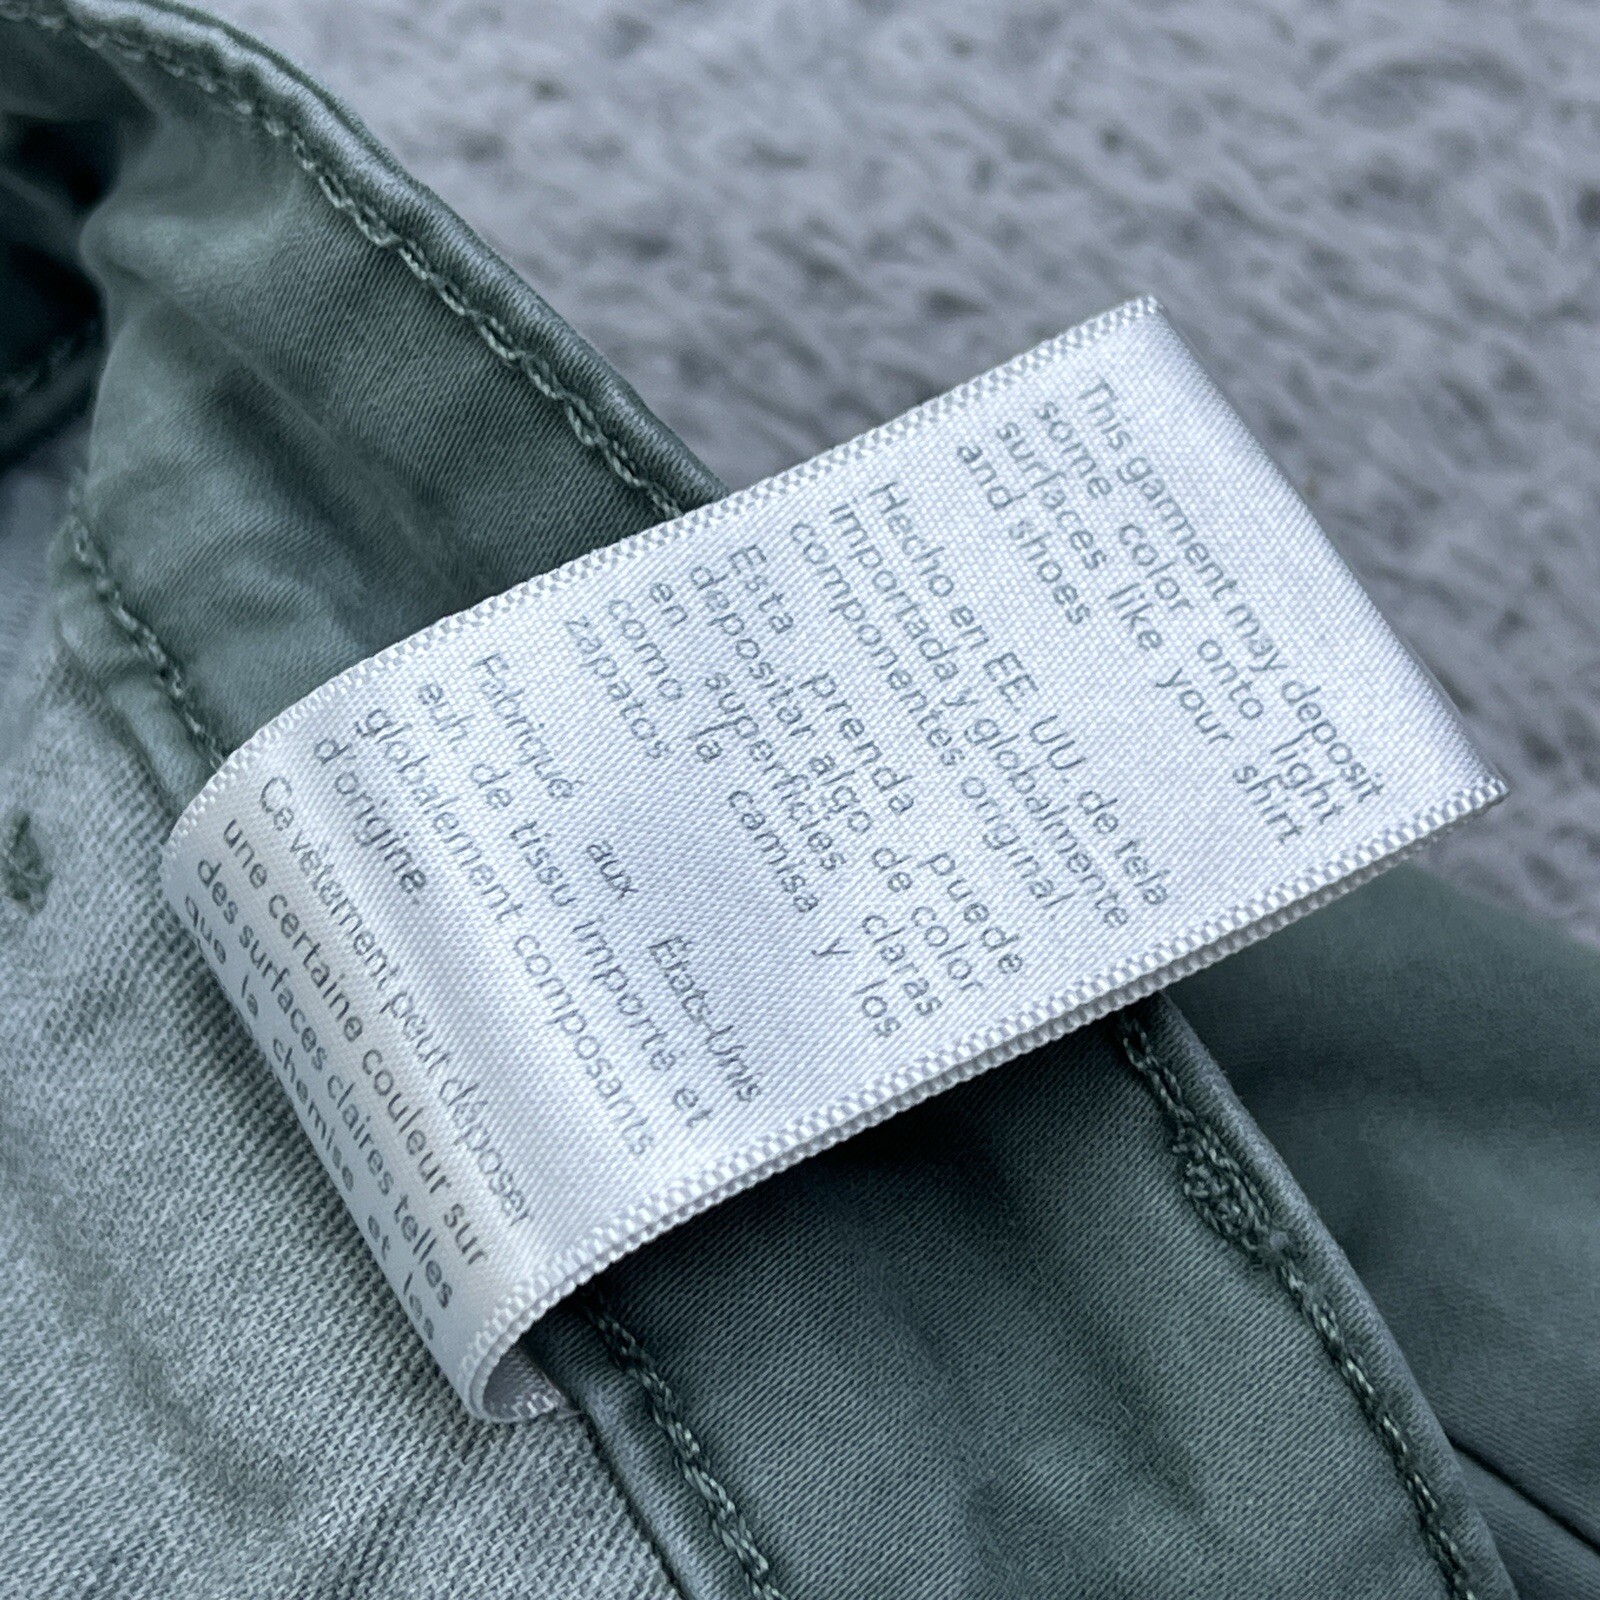 This garment may deposit
some color onto light
surfaces like your shirt
and shoes
Hecho en EE. UU. de tela
importada y globalmente
componentes original.
Esta prenda puede
depositar algo de color
en superficies claras
como la camisa y los
zapatos
Fabriqué aux États-Unis
euh. de tissu importé et
globalement composants
d'origine.
Ce vêtement peut déposer
une certaine couleur sur
des surfaces claires telles
que la chemise et les